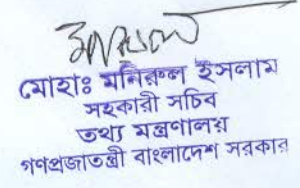 মোহাঃ মনিরুল ইসলাম
সহকারী সচিব
তথ্য মন্ত্রণালয়
গণপ্রজাতন্ত্রী বাংলাদেশ সরকার